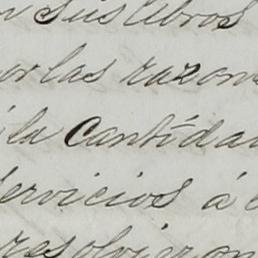 n sus libros
por las razon
á la Cantidad
servicios á
resolvieron